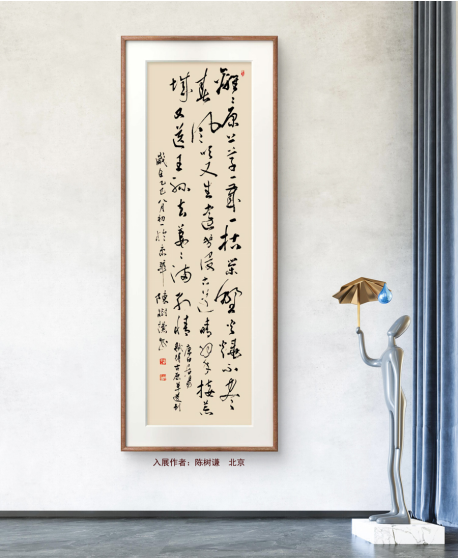 離〻原上草一歲一枯榮野火燒不盡
春風吹又生遠芳侵古道晴翠接荒
城又送王孫去萋〻滿別情
唐白居易
賦得古原草送别
歲在乙巳八月初一於京華陳樹謙書
入展作者：陈树谦 北京